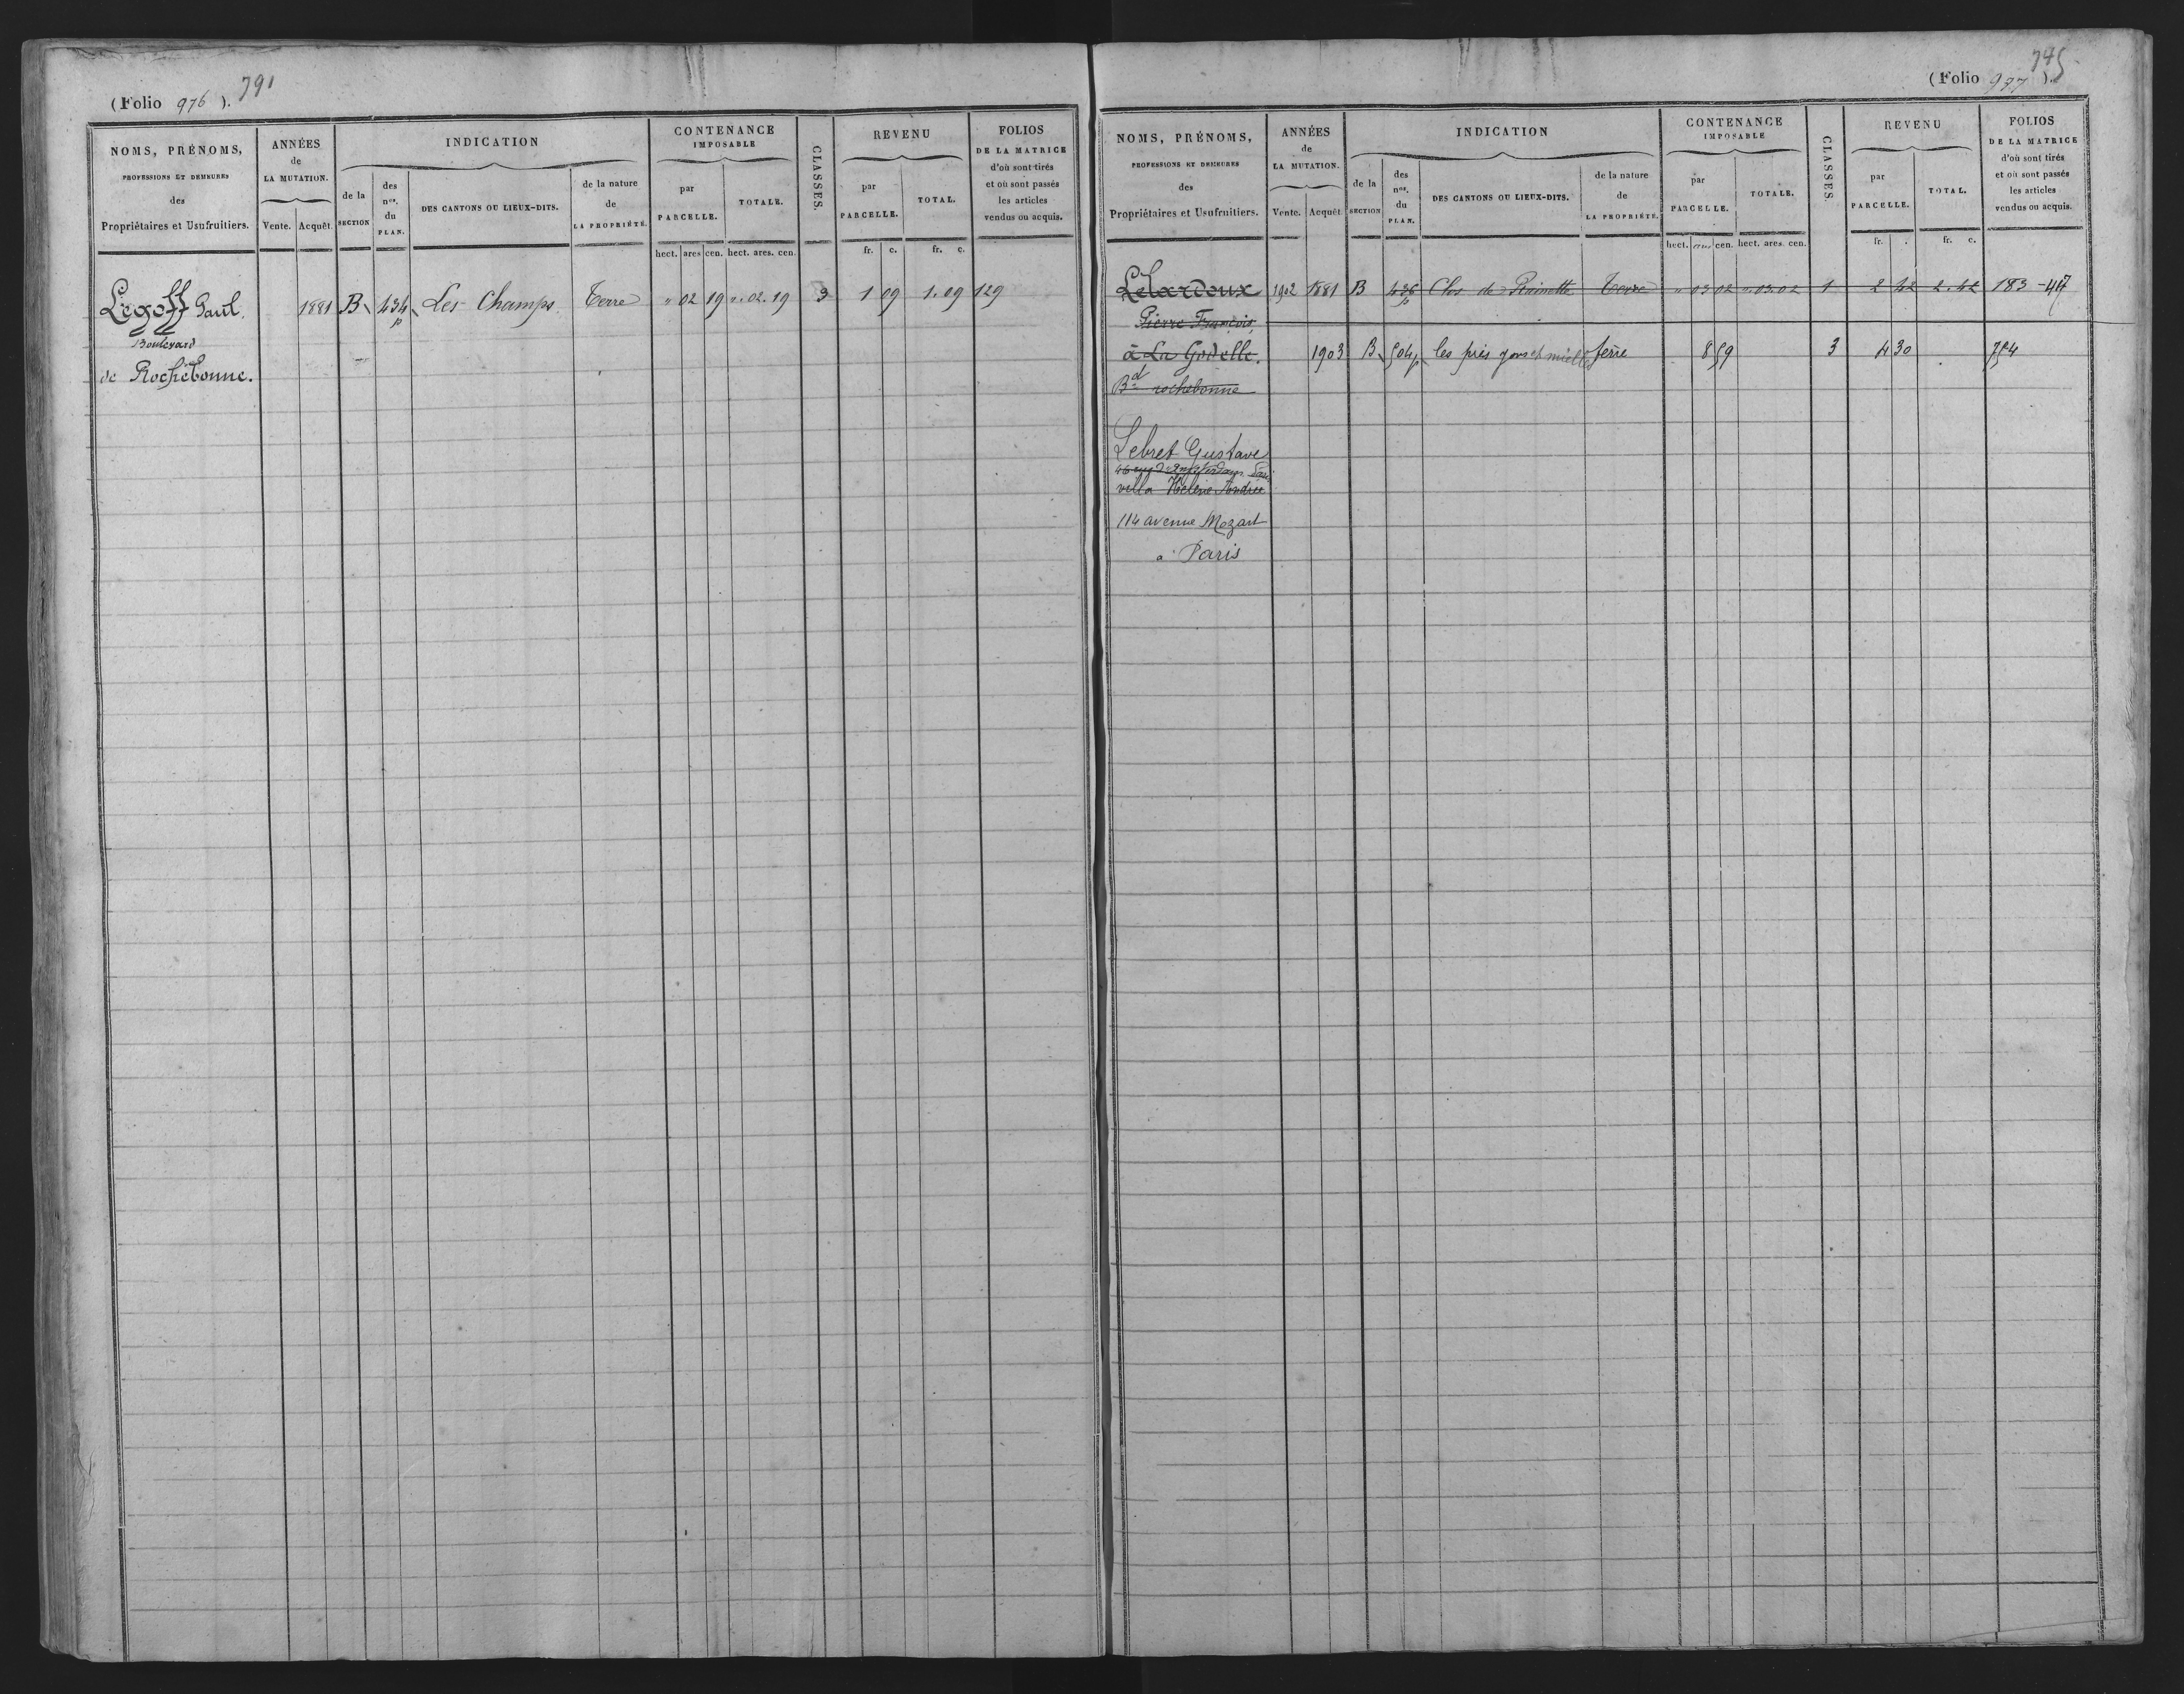 (Folio 976). 791
NOMS, PRÉNOMS,
PROFESSIONS ET DEMEURES
des
Propriétaires et Usufruitiers.
ANNÉES
de
LA MUTATION.
Vente. Acquêt.
INDICATION
de la
SECTION
des
nos.
du
PLAN.
DES CANTONS OU LIEUX-DITS.
de la nature
de
LA PROPRIÉTÉ.
CONTENANCE
IMPOSABLE
par
PARCELLE.
TOTALE.
hect. ares cen. hect. ares. cen.
CLASSES.
REVENU
par
PARCELLE.
TOTAL.
fr. c. fr. c.
FOLIOS
DE LA MATRICE
d'où sont tirés
et où sont passés
les articles
vendus ou acquis.
Légoff Paul. 1881 B 434 p Les Champs Terre " 02 19 ". 02. 19 3 1 09 1. 09 129
Boulevard
de Rochebonne.
(Folio 937). 795
NOMS, PRÉNOMS,
PROFESSIONS ET DEMEURES
des
Propriétaires et Usufruitiers.
ANNÉES
de
LA MUTATION.
Vente. Acquêt.
INDICATION
de la
SECTION
des
nos.
du
PLAN.
DES CANTONS OU LIEUX-DITS.
de la nature
de
LA PROPRIÉTÉ.
CONTENANCE
IMPOSABLE
par
PARCELLE.
TOTALE.
hect. cen. hect. ares. cen.
CLASSES.
REVENU
par
PARCELLE.
TOTAL.
fr. fr. c.
FOLIOS
DE LA MATRICE
d'où sont tirés
et où sont passés
les articles
vendus ou acquis.
Lelardoux 1902 1881 B 436 p Clos de Terre " 03 02 " 03. 02 1 2 42 2. 42 183 - 47
Pierre François
à La Godelle. 1903 B 504 p les près miellés terre 8 59 3 4 30 754
Bd rochebonne
Lebret Gustave
46 rue d'Amsterdam Paris
villa Hélène Andrée
114 avenue Mozart
a Paris